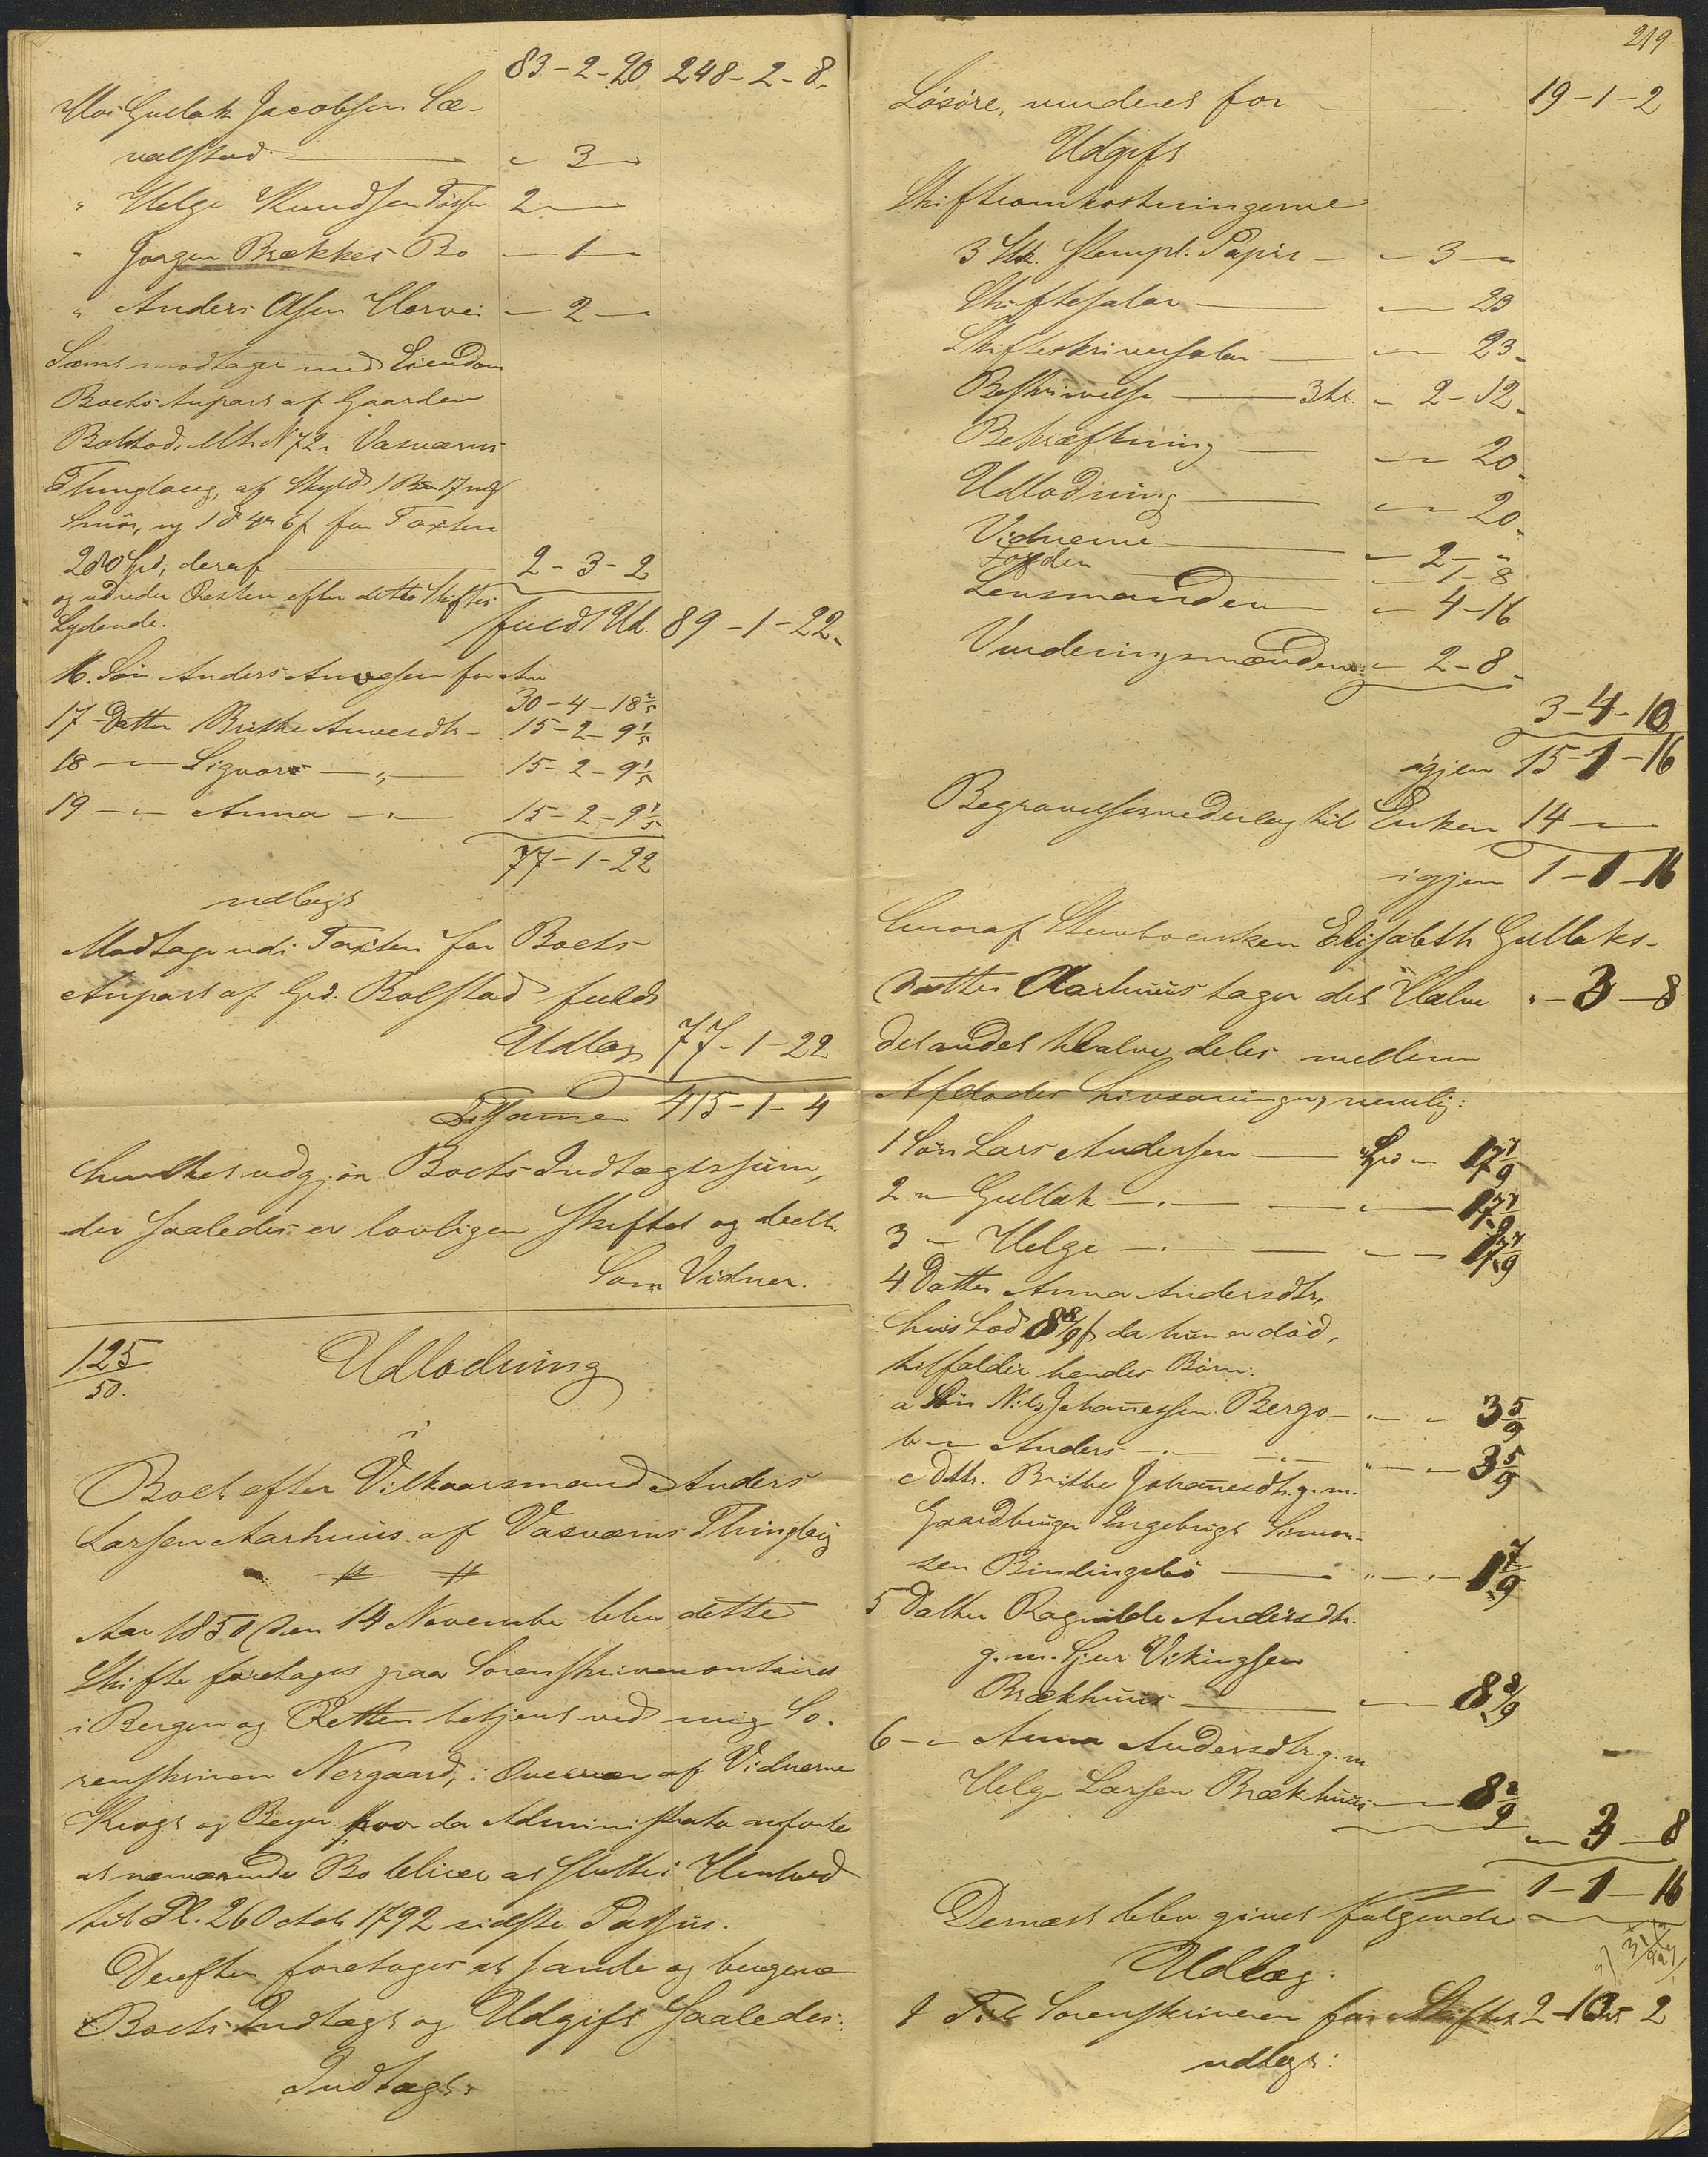 83-2-20 248-2-8.
Hos Gullak Jacobsen Sæ-
valstad - " 3 -
" Helge Knudsen Tøssen 2 -
" Jørgen Brækkes Bo - 1 -
" Anders Olsen Horvei - 2 -
Samt modtage med Eiendom
Boets Anpart af Gaarden
Bolstad, Mtr N 72 i Vasværns
Thinglaug, af Skyld 1 B 17 mk
Smør, ny 1 d 4 ort 6 s for Taxten
280 Spd, deraf 2-3-2
og udreder Resten efter dette Skiftes
Lydende. fuldt Udl. 89-1-22.
16. Søn Anders Anvesen for Arv
30-4-18 2/5
17 Datter Brithe Anvesdtr - 15-2-9 1/5
18 - " - Sigvor - " - 15-2-9 1/5
19 - " - Anna - " - 15-2-9 1/5
77-1-22
udlagt
Modtage udi Taxten for Boets
Anpart af Grd. Bolstad fuldt
Udlæg 77-1-22
Tilsammen 415-1-4
hvilket udgjør Boets Indtægtssum,
der saaledes er lovligen skiftet og deelt.
Som Vidner.
125
50.
Udlodning
i
Boet efter Vilkaarsmand Anders
Larsen Aarhuus af Vasværns Thinglaug
Aar 1850 den 14 November blev dette
Skifte foretaget paa Sorenskrivercontoiret
i Bergen og Retten betjent ved mig So-
renskriver Nergaard, i Overvær af Vidnerne
Krogh og Beyer hvor da Administrator anførte
at nærværende Bo bliver at slutte i Henhold
til Pl. 26 Octob 1792 sidste Passus.
Derefter foretages at samle og beregne
Boets Indtægt og Udgift saaledes:
Indtægt:
219
Løsøre, vurderet for 19-1-2
Udgift
Skifteomkostningerne
3 Stk. Stempl. Papir - " 3 -
Skiftesalar - 23
Skifteskriversalar - 23
Beskrivelse 3 Ark. " 2-12
Bekræftning - 20
Udlodning - 20
Vidnerne - 2 - "
Fogden - 1-8
Lensmanden " 4-16
Vurderingsmændene " 2-8
3-4-10
igjen 15-1-16
Begravelsesvederlag til Enken 14 -
igjen 1-1-16
hvoraf Stervboenken Elisabeth Gullaks-
datter Aarhuus tager det Halve " - 3 - 8
det andet Halve deles mellem
Afdødes Livsarvinger, nemlig:
1 Søn Lars Andersen - Spd " 17 7/9
2 " Gullak - " - 17 7/9
3 " Helge - " - 17 7/9
4 Datter Anna Andersdtr,
hvis Lod 8 8/9 s da hun er død,
tilfalder hendes Børn:
a Søn Nils Johannessen Bergo - " - " 3 5/9
b " Anders - " - " - " 3 5/9
c Dttr. Brithe Johannesdtr. g. m.
Gaardbruger Ingebrigt Simon-
sen Bindingsbø - " - " 1 7/9
5 Datter Ragnilde Andersdtr.
g. m. Sjur Vikingsen
Brækhuus - 8 8/9
6 - " Anna Andersdtr. g. m.
Helge Larsen Brækhuus - 8 8/9
" 3 - 8
1-1-16
Dernæst blev givet følgende
Udlæg.
1 Til Sorenskriveren for Skiftet 2
udlagt: